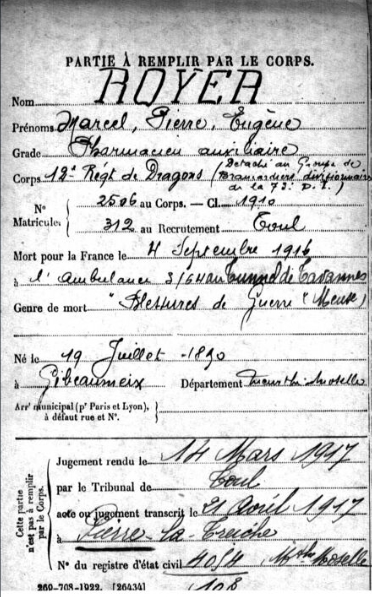 PARTIE À REMPLIR PAR LE CORPS.
Nom ROYER
Prénoms Marcel, Pierre, Eugène
Grade Pharmacien auxiliaire
Corps 12e Régt de Dragons (Détaché au Groupe de
Brancardiers divisionnaires
de la 73e D.I.)
N° 2506 au Corps. — Cl. 1910
Matricule. 312 au Recrutement Toul
Mort pour la France le 4 Septembre 1916
à l'Ambulance 3/64 au Tunnel de Tavannes
Genre de mort "Blessures de Guerre (Meuse)
Né le 19 Juillet 1890
à Gibeaumeix Département Meurthe-Moselle
Arr' municipal (pr Paris et Lyon),
à défaut rue et N°.
Cette partie
n'est pas à remplir
par le Corps.
Jugement rendu le 14 Mars 1917
par le Tribunal de Toul
acte ou jugement transcrit le 21 Avril 1917
à Pierre-la-Treiche
Mthe Moselle
N° du registre d'état civil 4054
108
269-708-1922. [26434]